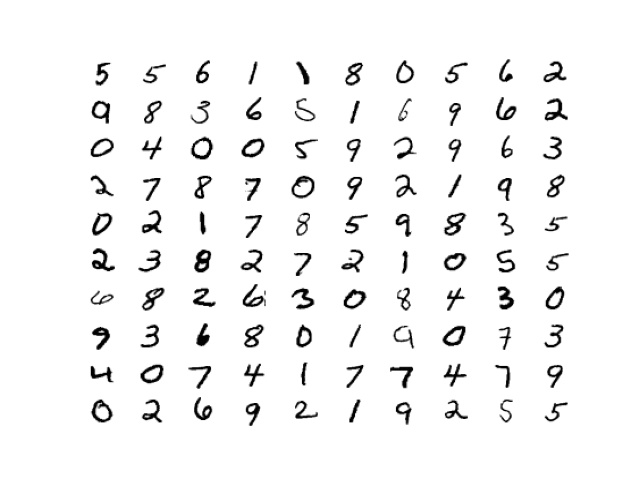 5 5 6 1 1 8 0 5 6 2
9 8 3 6 5 1 6 9 6 2
0 4 0 0 5 9 2 9 6 3
2 7 8 7 0 9 2 1 9 8
0 2 1 7 8 5 9 8 3 5
2 3 8 2 7 2 1 0 5 5
6 8 2 6 3 0 8 4 3 0
9 3 6 8 0 1 9 0 7 3
4 0 7 4 1 7 7 4 7 9
0 2 6 9 2 1 9 2 5 5